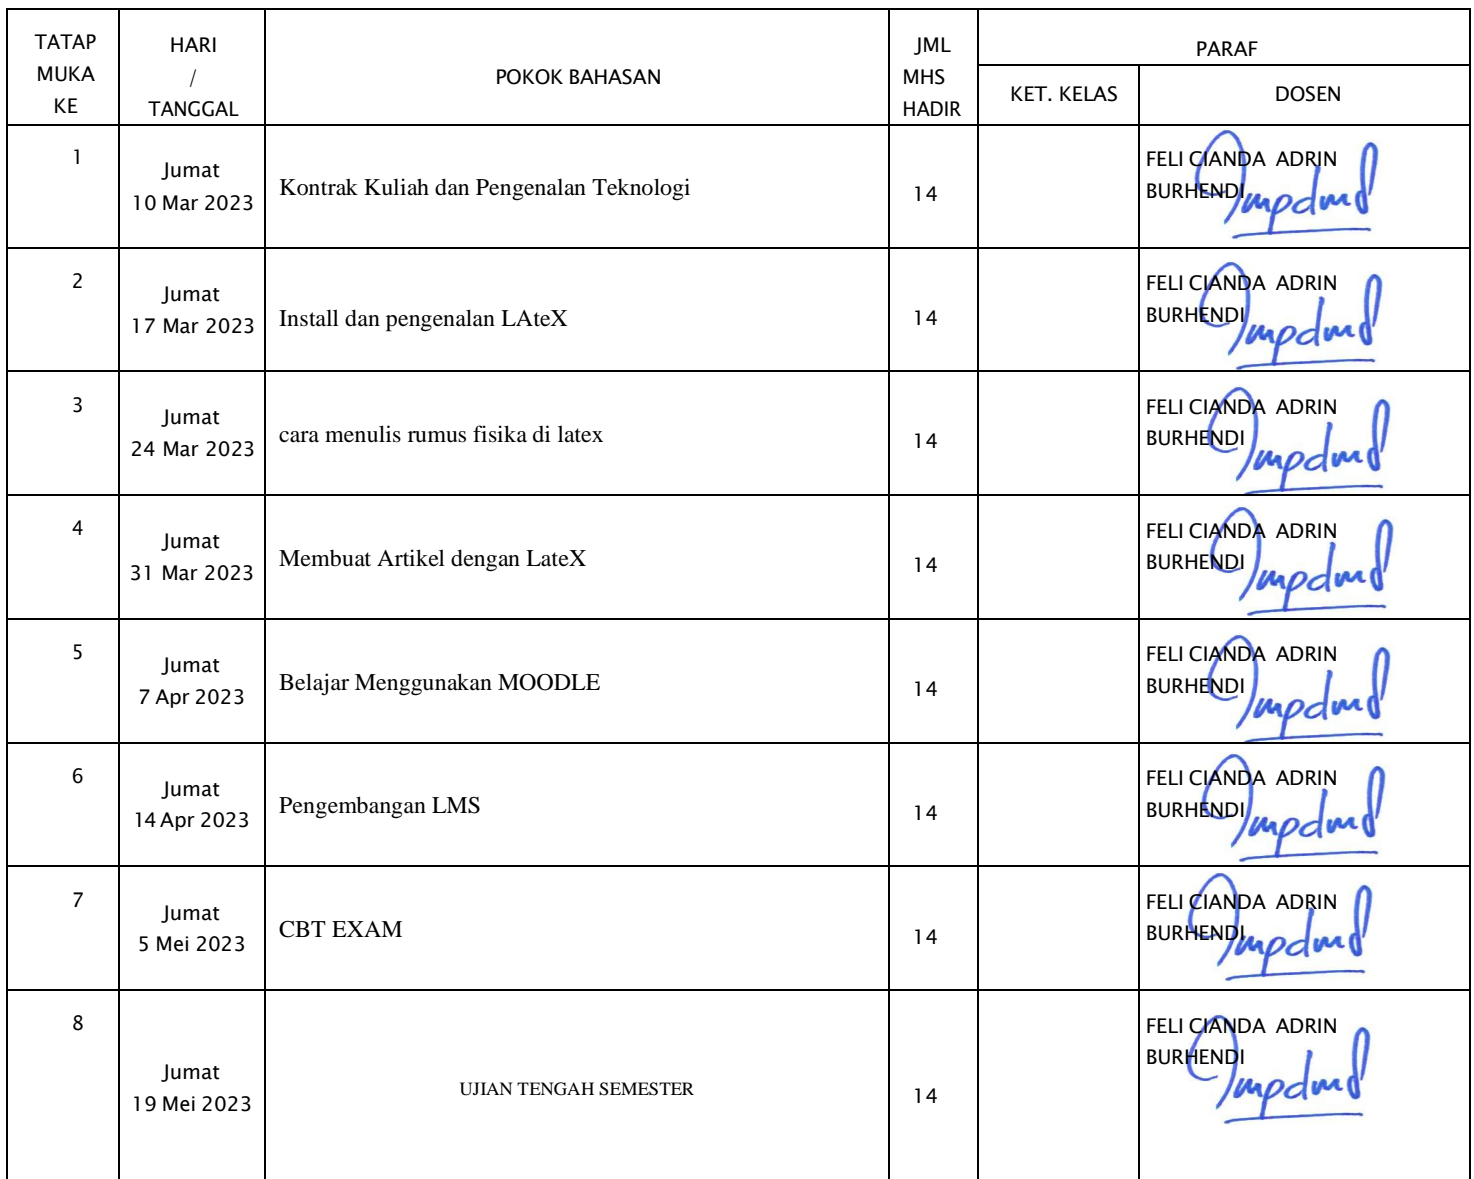 TATAP
MUKA
KE
HARI
/
TANGGAL
POKOK BAHASAN
JML
MHS
HADIR
PARAF
KET. KELAS
DOSEN
1
Jumat
10 Mar 2023
Kontrak Kuliah dan Pengenalan Teknologi
14
FELI CIANDA ADRIN
BURHENDI
2
Jumat
17 Mar 2023
Install dan pengenalan LAteX
14
FELI CIANDA ADRIN
BURHENDI
3
Jumat
24 Mar 2023
cara menulis rumus fisika di latex
14
FELI CIANDA ADRIN
BURHENDI
4
Jumat
31 Mar 2023
Membuat Artikel dengan LateX
14
FELI CIANDA ADRIN
BURHENDI
5
Jumat
7 Apr 2023
Belajar Menggunakan MOODLE
14
FELI CIANDA ADRIN
BURHENDI
6
Jumat
14 Apr 2023
Pengembangan LMS
14
FELI CIANDA ADRIN
BURHENDI
7
Jumat
5 Mei 2023
CBT EXAM
14
FELI CIANDA ADRIN
BURHENDI
8
Jumat
19 Mei 2023
UJIAN TENGAH SEMESTER
14
FELI CIANDA ADRIN
BURHENDI